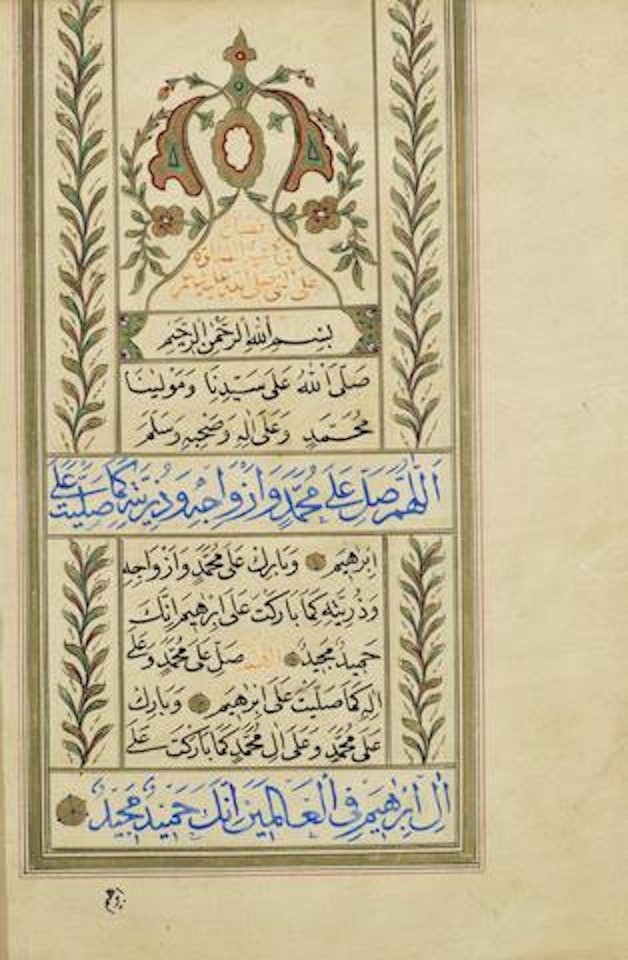 فصل
في كيفية الصلوة
على النبي صلى الله عليه وسلم
بِسْمِ اللهِ الرَّحْمٰنِ الرَّحِيمِ
صَلَّى اللهُ عَلَى سَيِّدِنَا وَمَوْلٰينَا
مُحَمَّدٍ وَعَلَى اٰلِهِ وَصَحْبِهِ وَسَلَّمَ
اَللّٰهُمَّ صَلِّ عَلَى مُحَمَّدٍ وَاَزْوَاجِهِ وَذُرِّيَّتِهِ كَمَا صَلَّيْتَ عَلَى
اِبْرٰهِيمَ وَبَارِكْ عَلَى مُحَمَّدٍ وَاَزْوَاجِهِ
وَذُرِّيَّتِهِ كَمَا بَارَكْتَ عَلَى اِبْرٰهِيمَ اِنَّكَ
حَمِيدٌ مَجِيدٌ اللهم صَلِّ عَلَى مُحَمَّدٍ وَعَلَى
اٰلِهِ كَمَا صَلَّيْتَ عَلَى اِبْرٰهِيمَ وَبَارِكْ
عَلَى مُحَمَّدٍ وَعَلَى اٰلِ مُحَمَّدٍ كَمَا بَارَكْتَ عَلَى
اٰلِ اِبْرٰهِيمَ فِي الْعَالَمِينَ اِنَّكَ حَمِيدٌ مَجِيدٌ